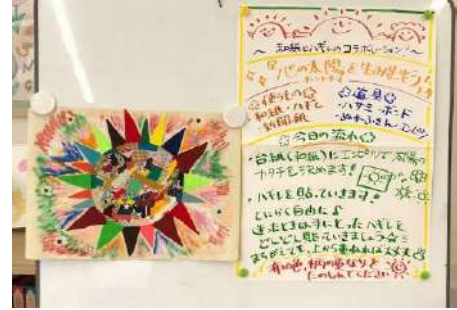 ～和紙とハギレのコラボレーション！～
心の太陽を生み出そう
使うもの
和紙・ハギレ
新聞紙
道具
・ハサミ・ボンド
今日の流れ
・台紙(和紙)にエンピツで太陽の
カタチを決めます！
・ハギレを貼っていきます。
とにかく自由に♪
迷ったときは手にとったハギレを
どんどん貼っていきましょう
まちがえても、上から重ねれば大丈夫
布の色、柄の重なりを
たのしんでください